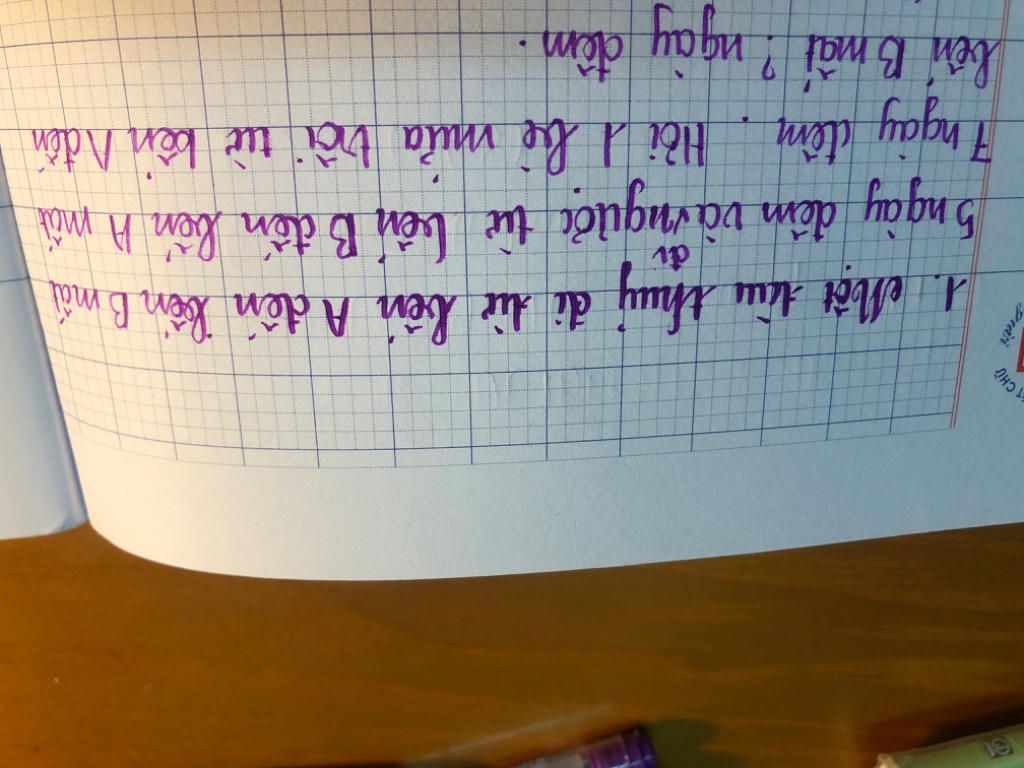 1. Một tàu thuỷ đi từ bến A đến bến B mất
5 ngày đêm và đi ngược từ bến B đến bến A mất
7 ngày đêm. Hỏi 1 bè nứa trôi từ bến A đến
bến B mất ? ngày đêm.